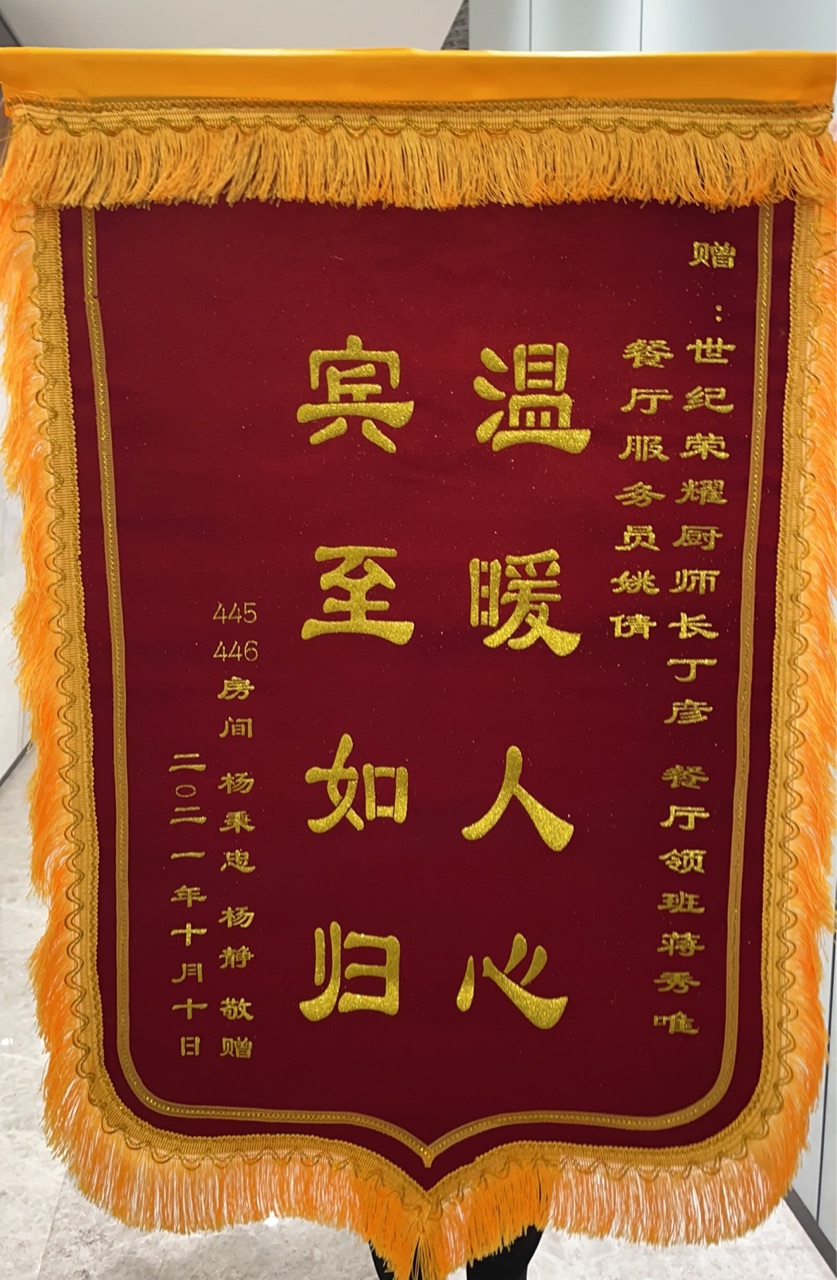 赠：世纪荣耀厨师长丁彦 餐厅领班蒋秀唯
餐厅服务员姚倩
温暖人心
宾至如归
445
446
房间 杨秉忠 杨静 敬赠
二○二一年十月十日